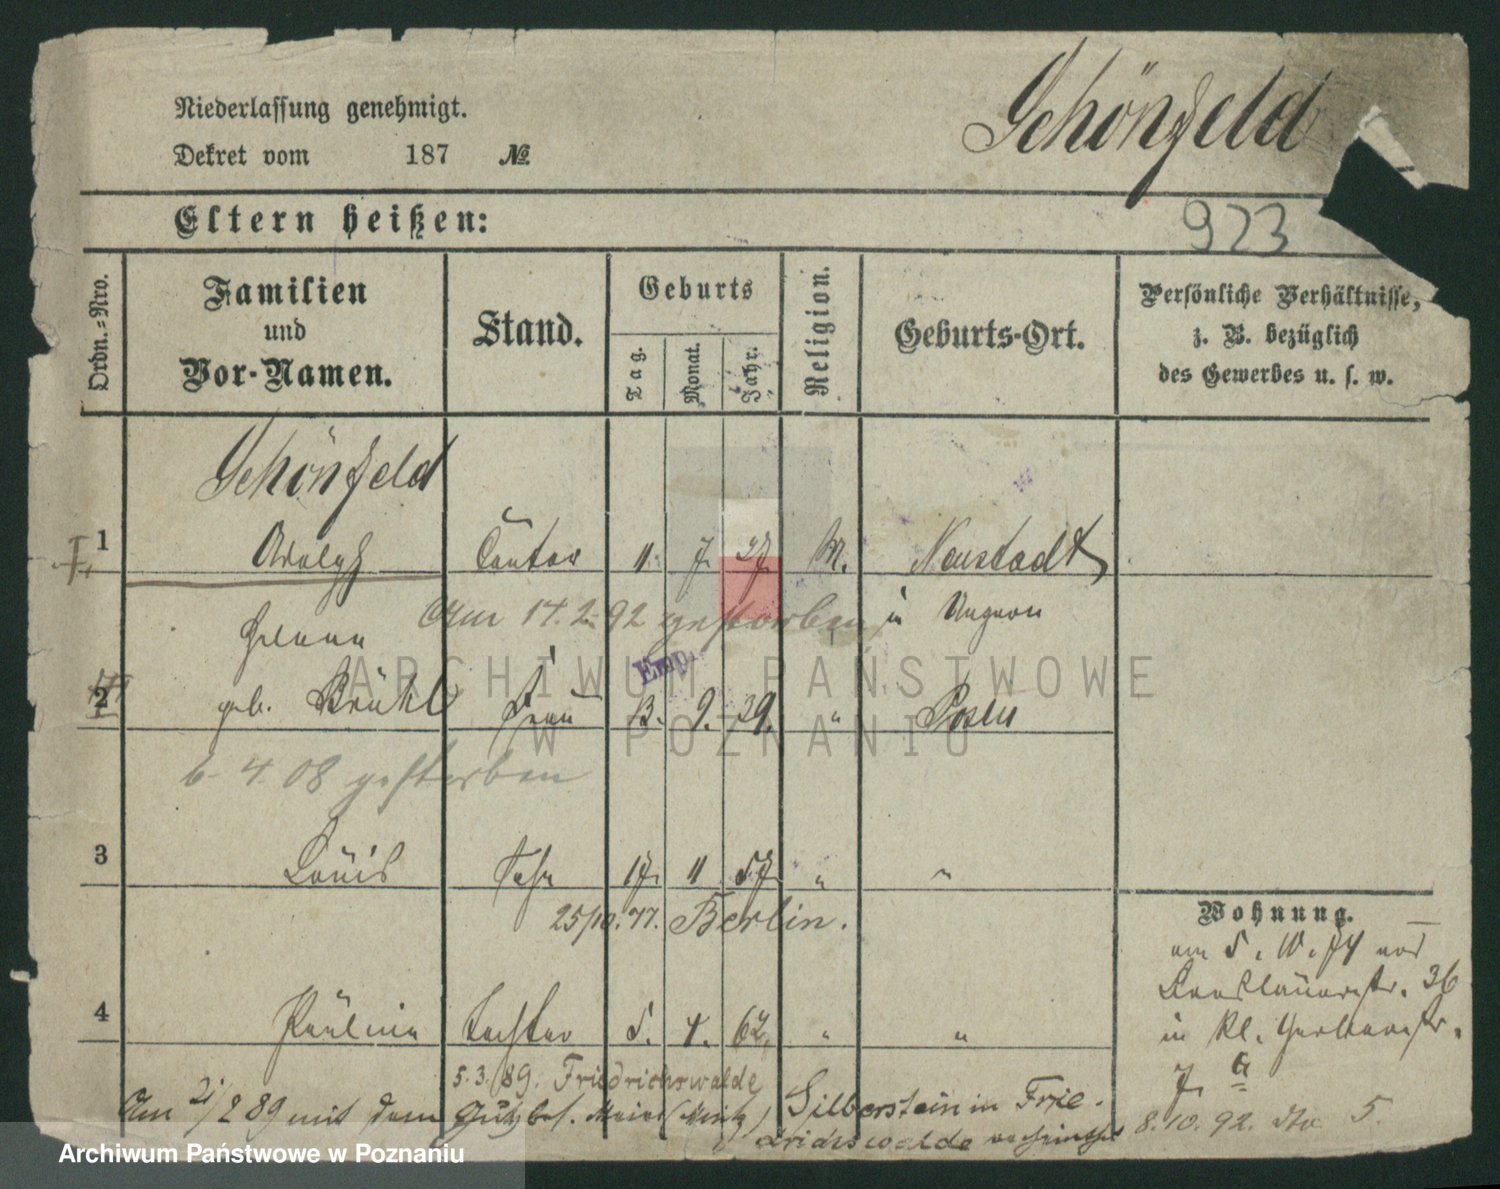 Schönfeld
Niederlassung genehmigt.
Dekret vom 187 №
Eltern heißen:
923
Ordn.=Nro.
Familien
und
Vor-Namen.
Stand.
Geburts
Tag.
Monat.
Jahr.
Religion.
Geburts-Ort.
Persönliche Verhältnisse,
z. B. bezüglich
des Gewerbes u. s. w.
Schönfeld
1 Adolph Cantor 11. 7. 27. M. Neustadt
Am 17.2.92 gestorben in Ungarn
Emp.
2 geb. Brühl Frau 13. 9. 29. " Posen
6.4.08 gestorben
3 Louis Sohn 17. 11 57. " "
25/10.77. Berlin.
4 Pauline Tochter 5. 4. 62. " "
5.3.89. Friedrichswalde
Am 21/2 89 mit dem Gutsbes. Silberstein in Frie-
drichswalde
Wohnung.
am 5. 10. 74 von
Breslauerstr. 36
in Kl. Gerberstr.
7 a
8.10.92. 5.
ARCHIWUM PAŃSTWOWE
W POZNANIU
Archiwum Państwowe w Poznaniu